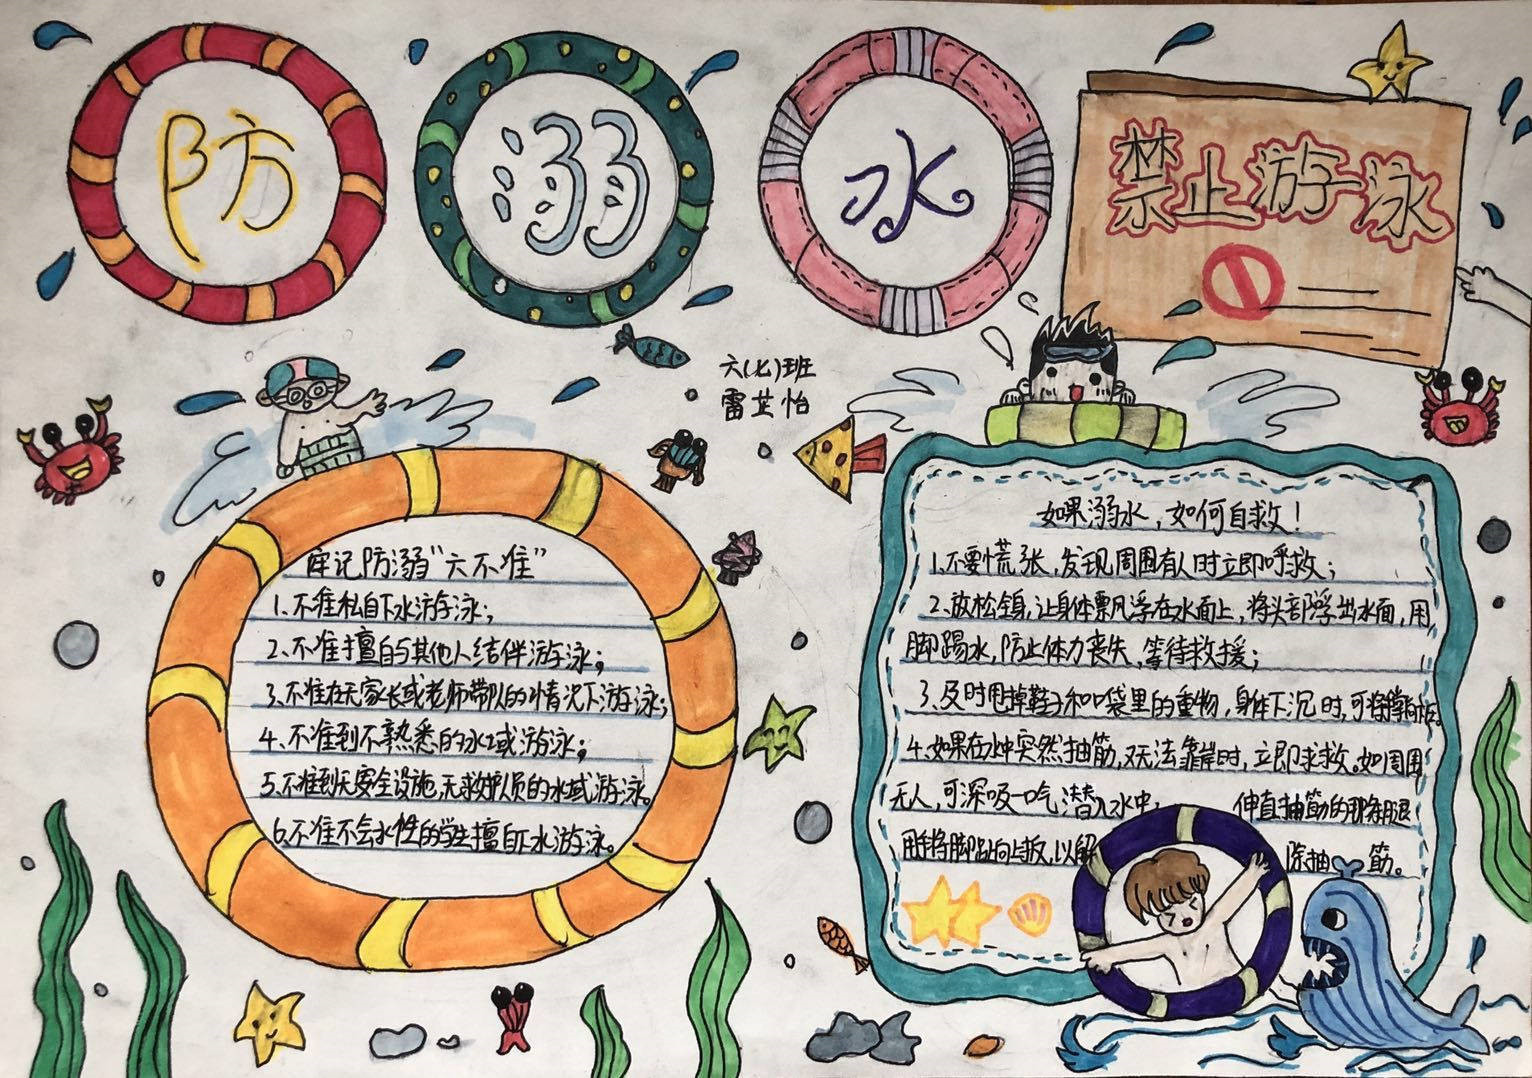 防
溺
水
禁止游泳
六(七)班
雷芷怡
牢记防溺“六不准”
1、不准私自下水游泳;
2、不准擅自与其他人结伴游泳;
3、不准在无家长或老师带队的情况下游泳;
4、不准到不熟悉的水域游泳;
5、不准到无安全设施,无救护员的水域游泳。
6、不准不会水性的学生擅自下水游泳。
如果溺水,如何自救!
1、不要慌张,发现周围有人时立即呼救;
2、放松全身,让身体飘浮在水面上,将头部浮出水面,用
脚踢水,防止体力丧失,等待救援;
3、及时甩掉鞋子和口袋里的重物,身体下沉时,可将
4、如果在水中突然抽筋,又无法靠岸时,立即求救。如周围
无人,可深吸一口气潜入水中, 伸直抽筋的那条腿
用手将脚趾向上扳,以解 除抽 筋。